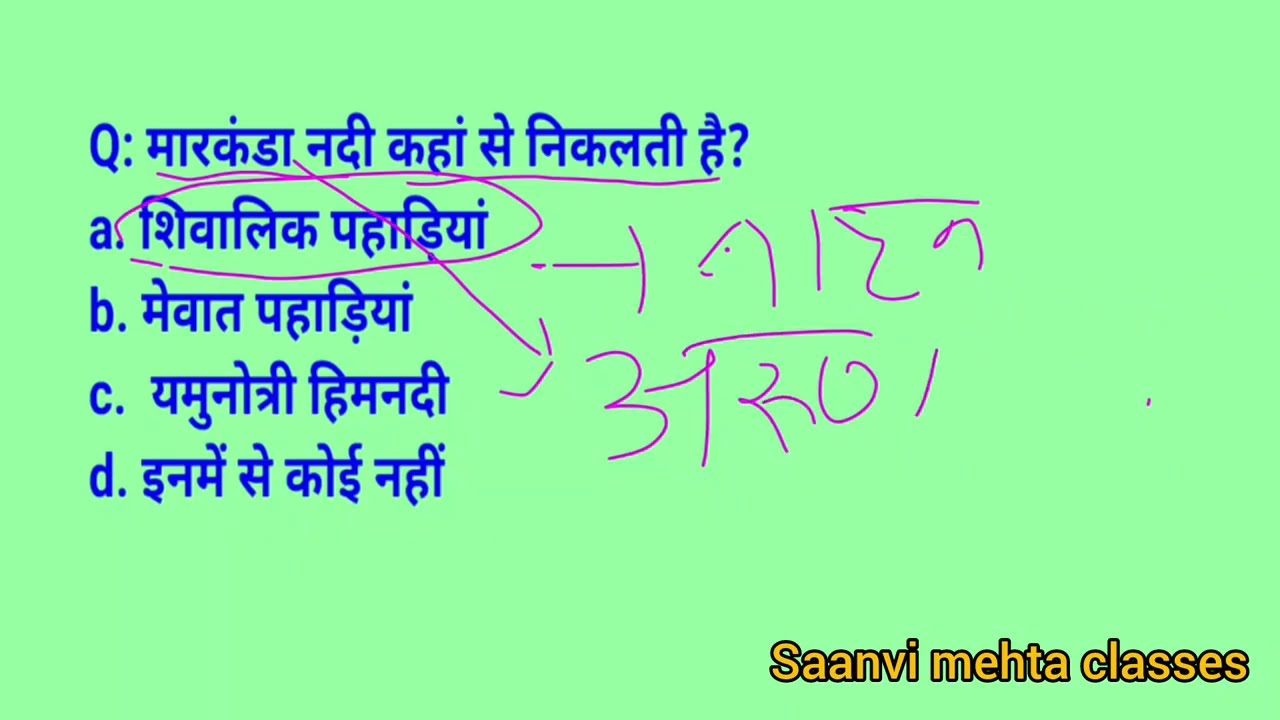 Q: मारकंडा नदी कहां से निकलती है?
a. शिवालिक पहाड़ियां
b. मेवात पहाड़ियां
c. यमुनोत्री हिमनदी
d. इनमें से कोई नहीं
नाहन
अरुणा
Saanvi mehta classes